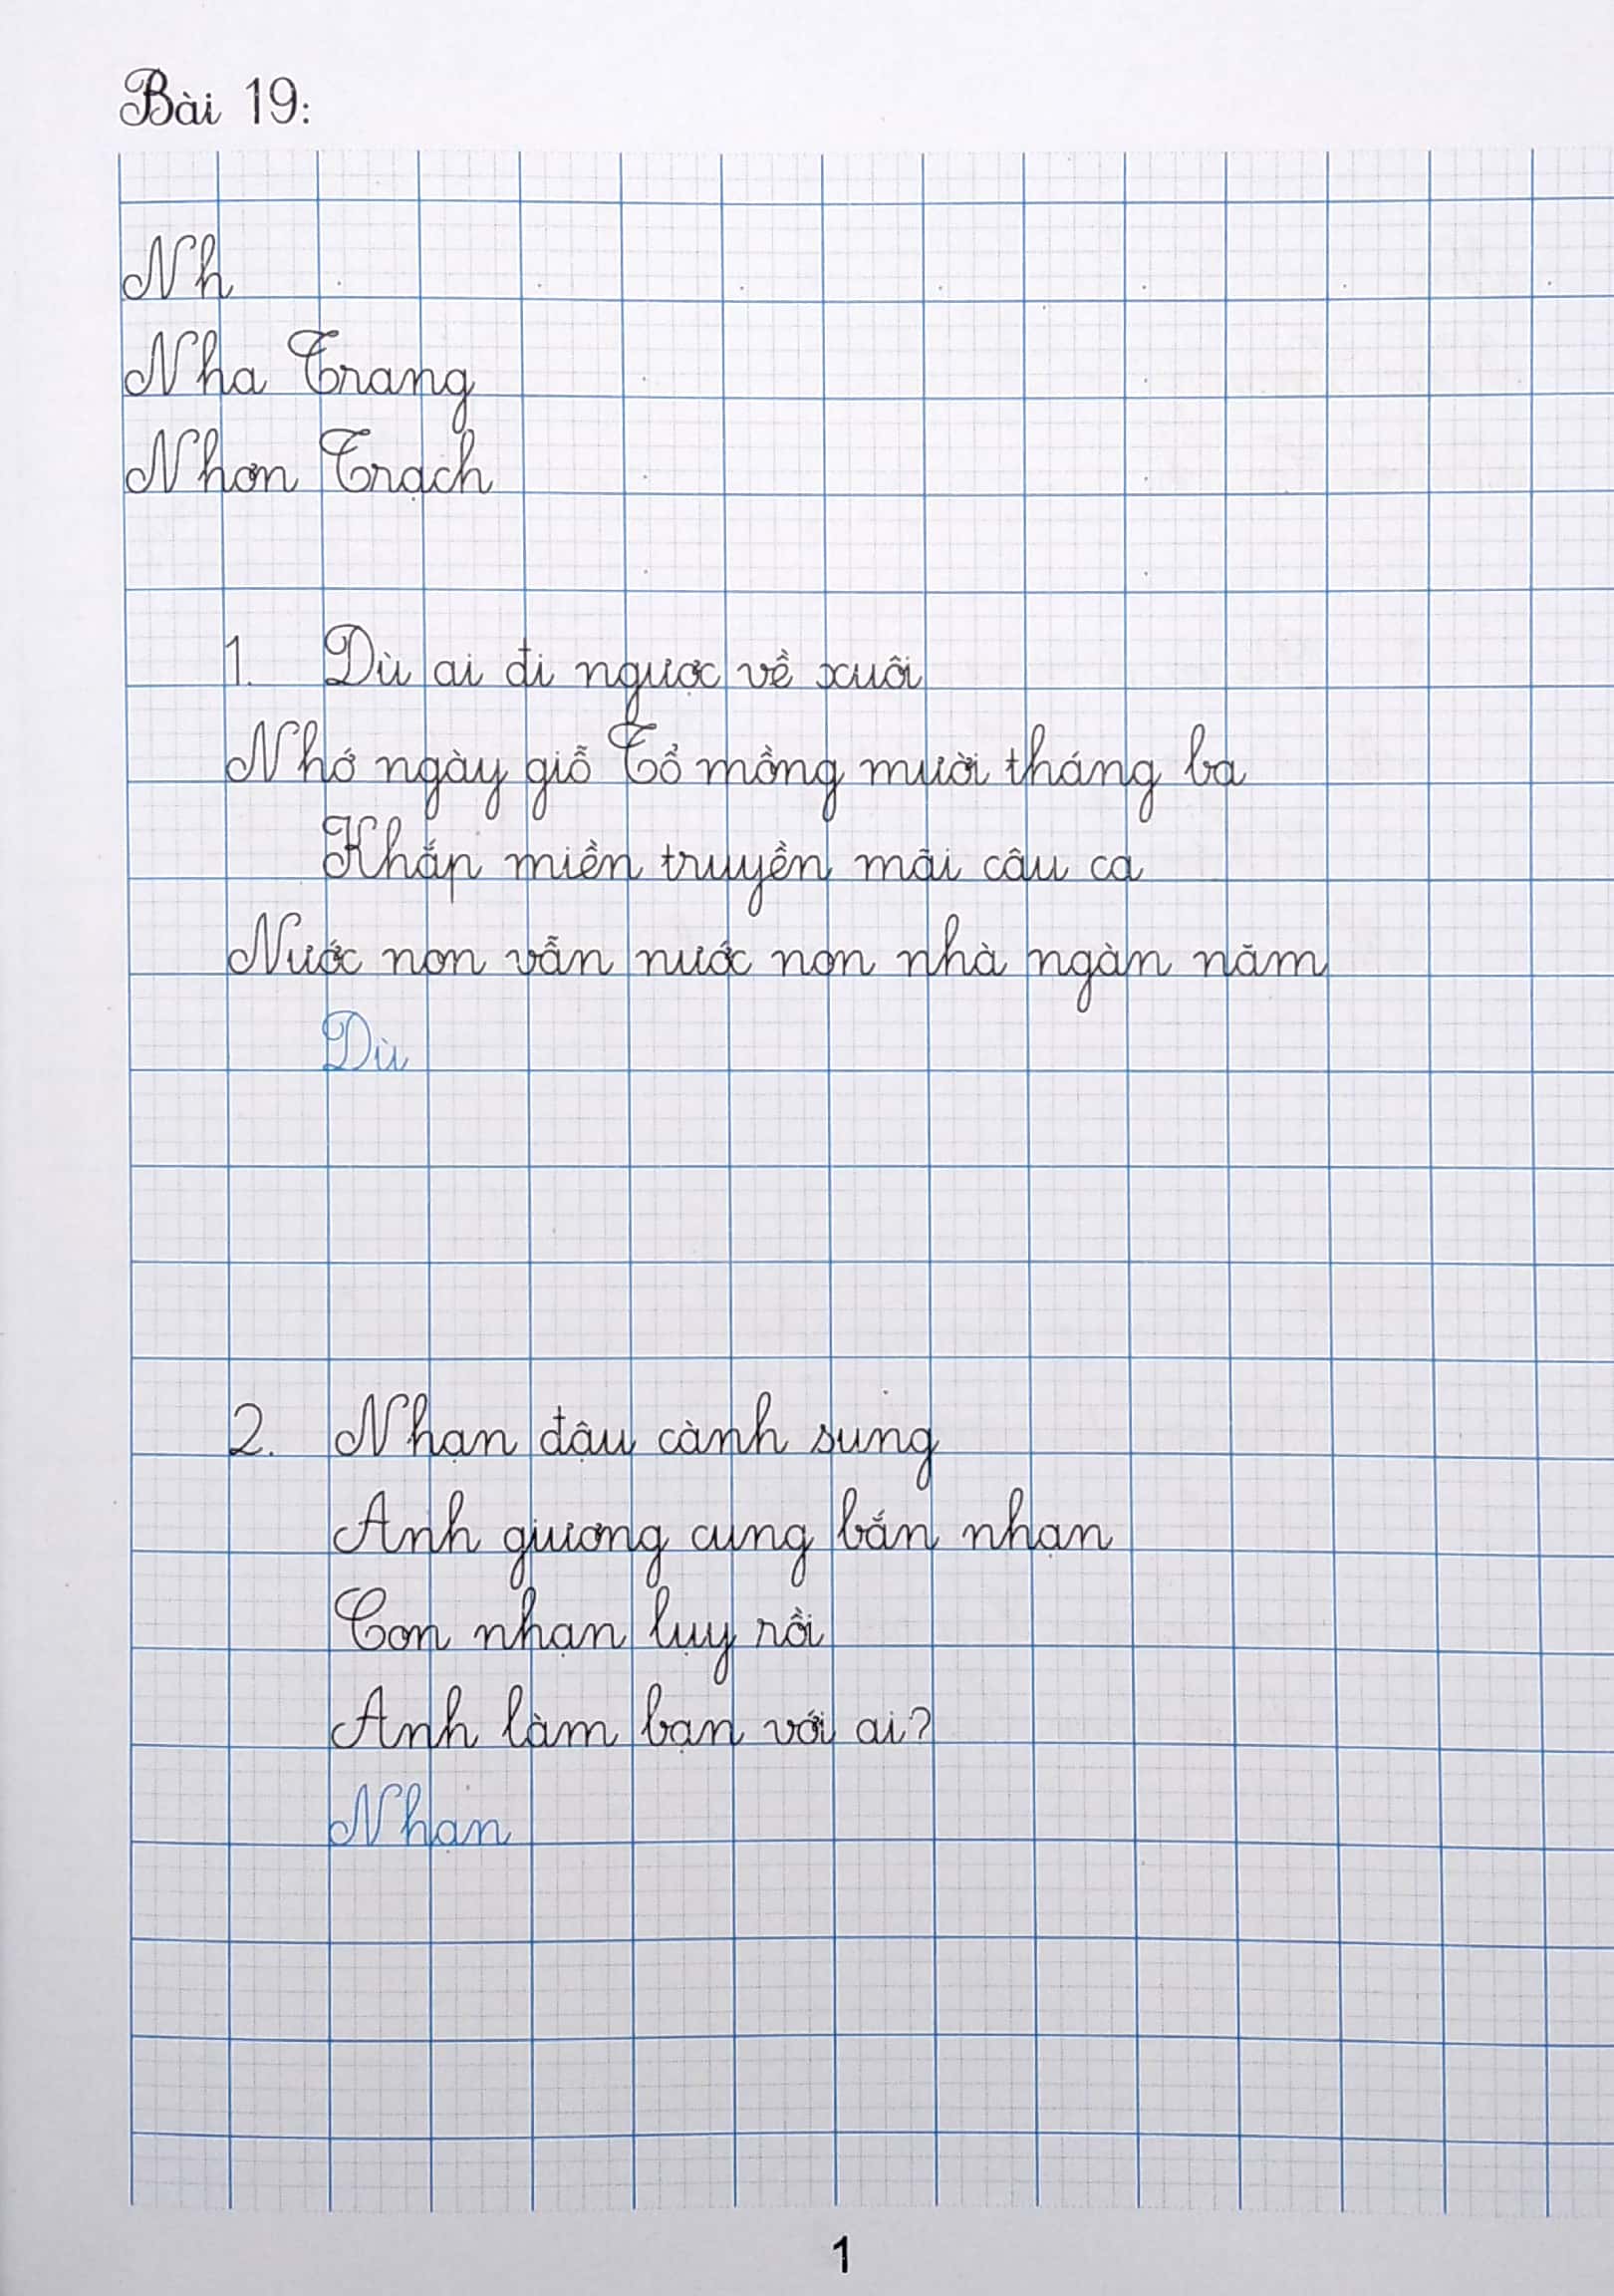 Bài 19:
Nh
Nha Trang
Nhơn Trạch
1. Dù ai đi ngược về xuôi
Nhớ ngày giỗ Tổ mồng mười tháng ba
Khắp miền truyền mãi câu ca
Nước non vẫn nước non nhà ngàn năm
Dù
2. Nhạn đậu cành sung
Anh giương cung bắn nhạn
Con nhạn lụy rồi
Anh làm bạn với ai?
Nhạn
1